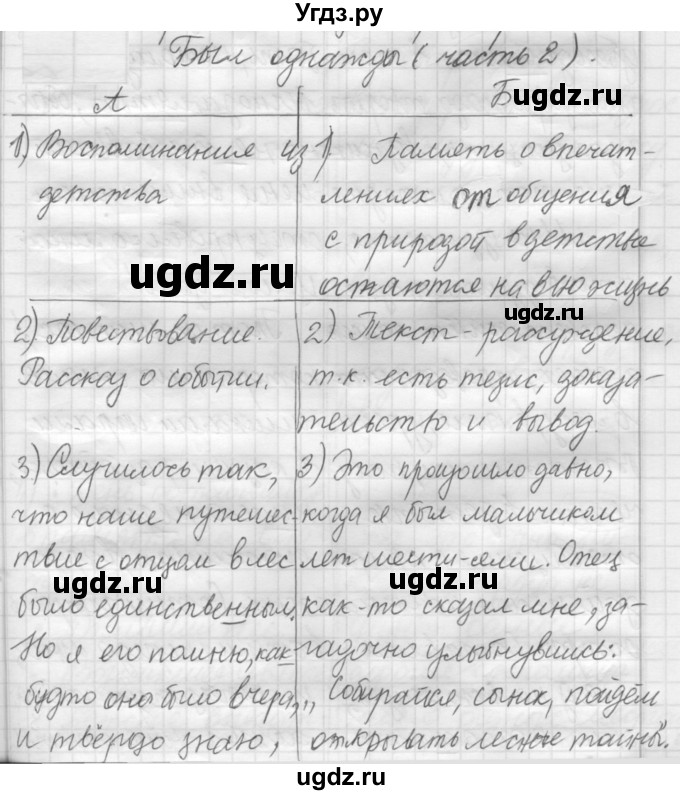 Угдз.ру
Был однажды (часть 2).
А
Б
ugdz.ru
1) Воспоминания из
детства
1) Память о впечат-
лениях от общения
с природой в детстве
остаются на всю жизнь
ugdz.ru
2) Повествование.
Рассказ о событии.
2) Текст - рассуждение,
т.к. есть тезис, доказа-
тельство и вывод.
ugdz.ru
3) Случилось так,
что наше путешес-
твие с отцом в лес
было единственным.
Но я его помню, как
будто оно было вчера,
и твёрдо знаю,
3) Это произошло давно,
когда я был мальчиком
лет шести-семи. Отец
как-то сказал мне, за-
гадочно улыбнувшись:
„Собирайся, сынок, пойдём
открывать лесные тайны".
ugdz.ru
ugdz.ru
ugdz.ru